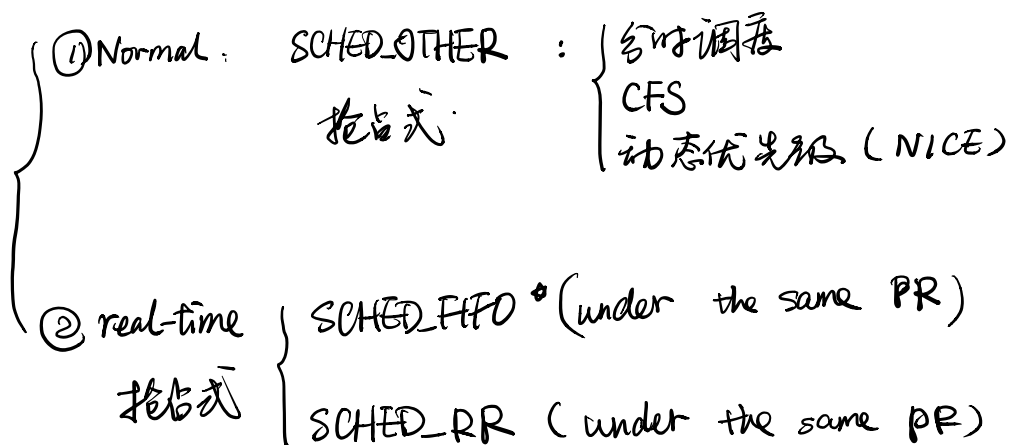 ①Normal: SCHED_OTHER : 分时调度
抢占式 CFS
动态优先级 (NICE)
② real-time SCHED_FIFO (under the same PR)
抢占式
SCHED_RR (under the same PR)